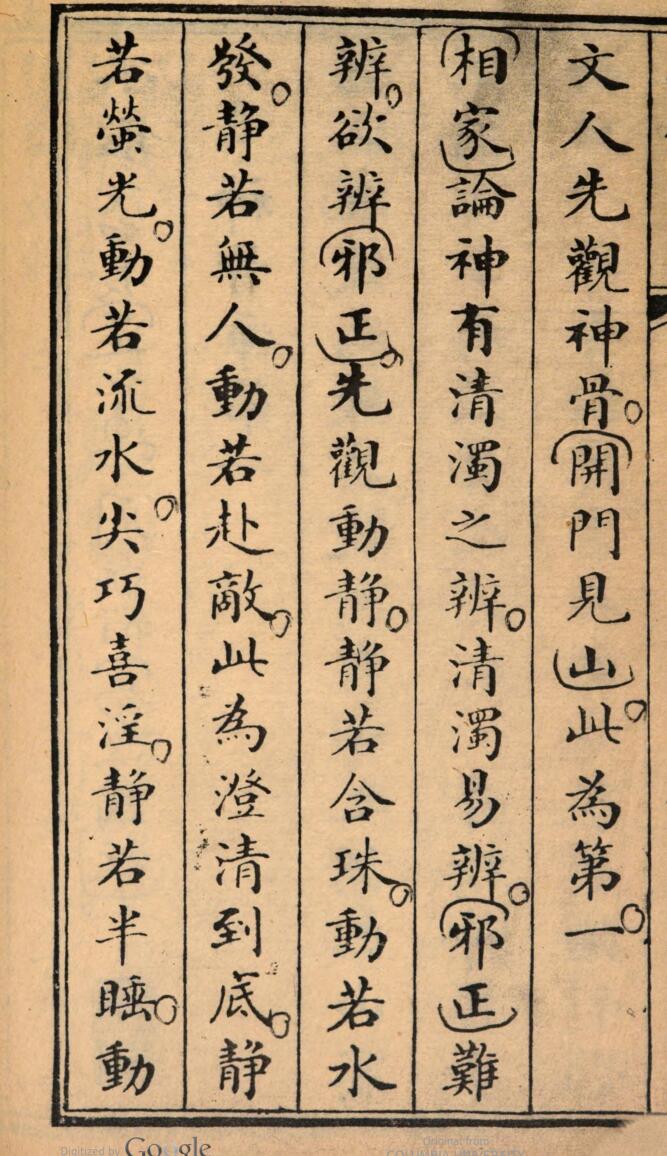 文人先觀神骨。開門見山。此為第一。
相家論神有清濁之辨。清濁易辨。邪正難
辨。欲辨邪正。先觀動静。静若含珠。動若水
發。静若無人。動若赴敵。此為澄清到底。静
若螢光。動若流水。尖巧喜淫。静若半睡。動
Digitized by Google
Original from
COLUMBIA UNIVERSITY